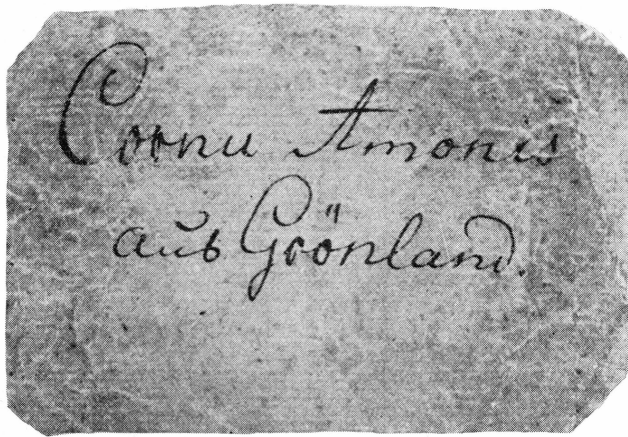 Cornu Amonis
aus Grönland.